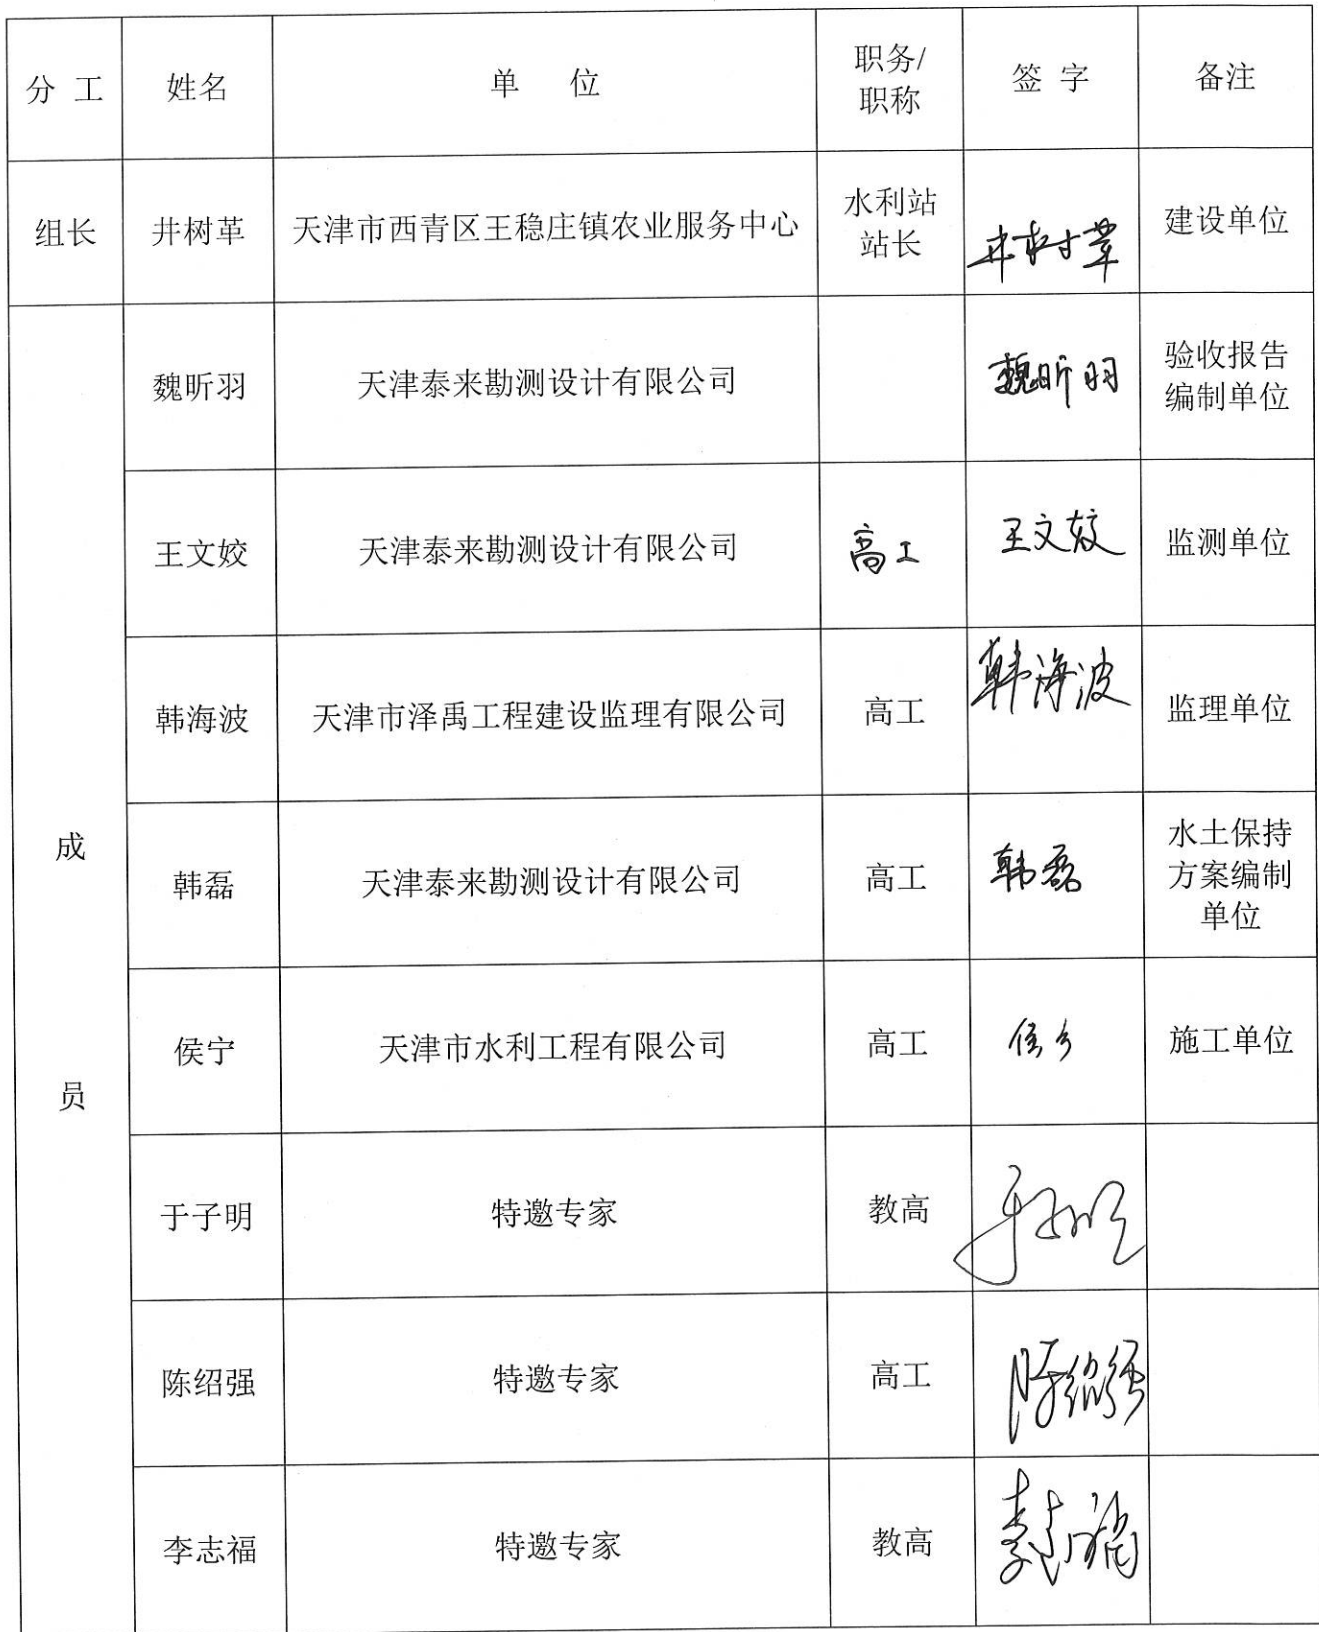 分 工 姓名 单 位 职务/ 职称 签 字 备注
组长 井树革 天津市西青区王稳庄镇农业服务中心 水利站 站长 井树革 建设单位
魏昕羽 天津泰来勘测设计有限公司 魏昕羽 验收报告 编制单位
王文姣 天津泰来勘测设计有限公司 高工 王文姣 监测单位
韩海波 天津市泽禹工程建设监理有限公司 高工 韩海波 监理单位
成 员
韩磊 天津泰来勘测设计有限公司 高工 韩磊 水土保持 方案编制 单位
侯宁 天津市水利工程有限公司 高工 侯宁 施工单位
于子明 特邀专家 教高 于子明
陈绍强 特邀专家 高工 陈绍强
李志福 特邀专家 教高 李志福